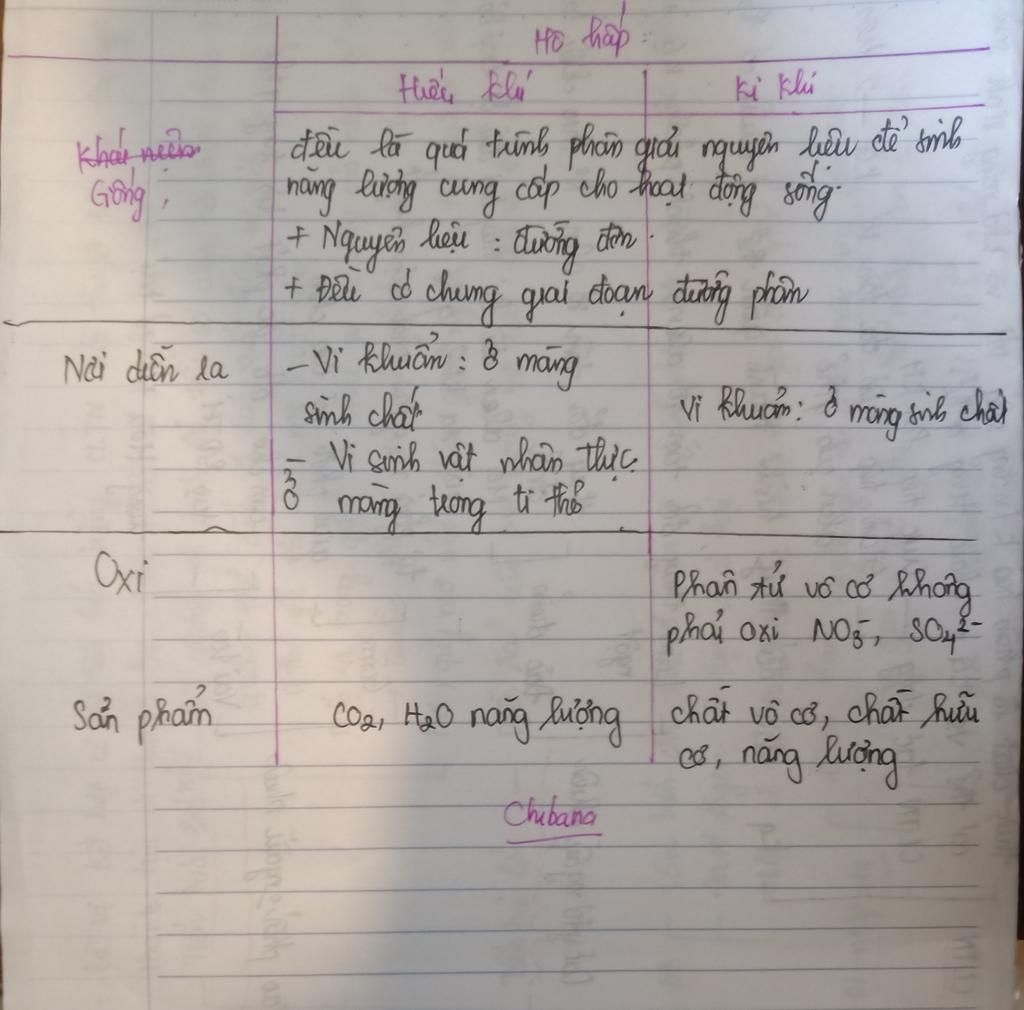 Hô hấp:
Hiếu khí
Kị khí
Khái niệm
Giống,
đều là quá trình phân giải nguyên liệu để sinh
năng lượng cung cấp cho hoạt động sống.
+ Nguyên liệu : đường đơn.
+ Đều có chung giai đoạn đường phân
Nơi diễn ra
– Vi khuẩn : ở màng
sinh chất
– Vi sinh vật nhân thực
ở màng trong ti thể
Vi khuẩn: ở màng sinh chất
Oxi
Phân tử vô cơ không
phải oxi NO3-, SO4 2-
Sản phẩm
CO2, H2O năng lượng
chất vô cơ, chất hữu
cơ, năng lượng
Chibana